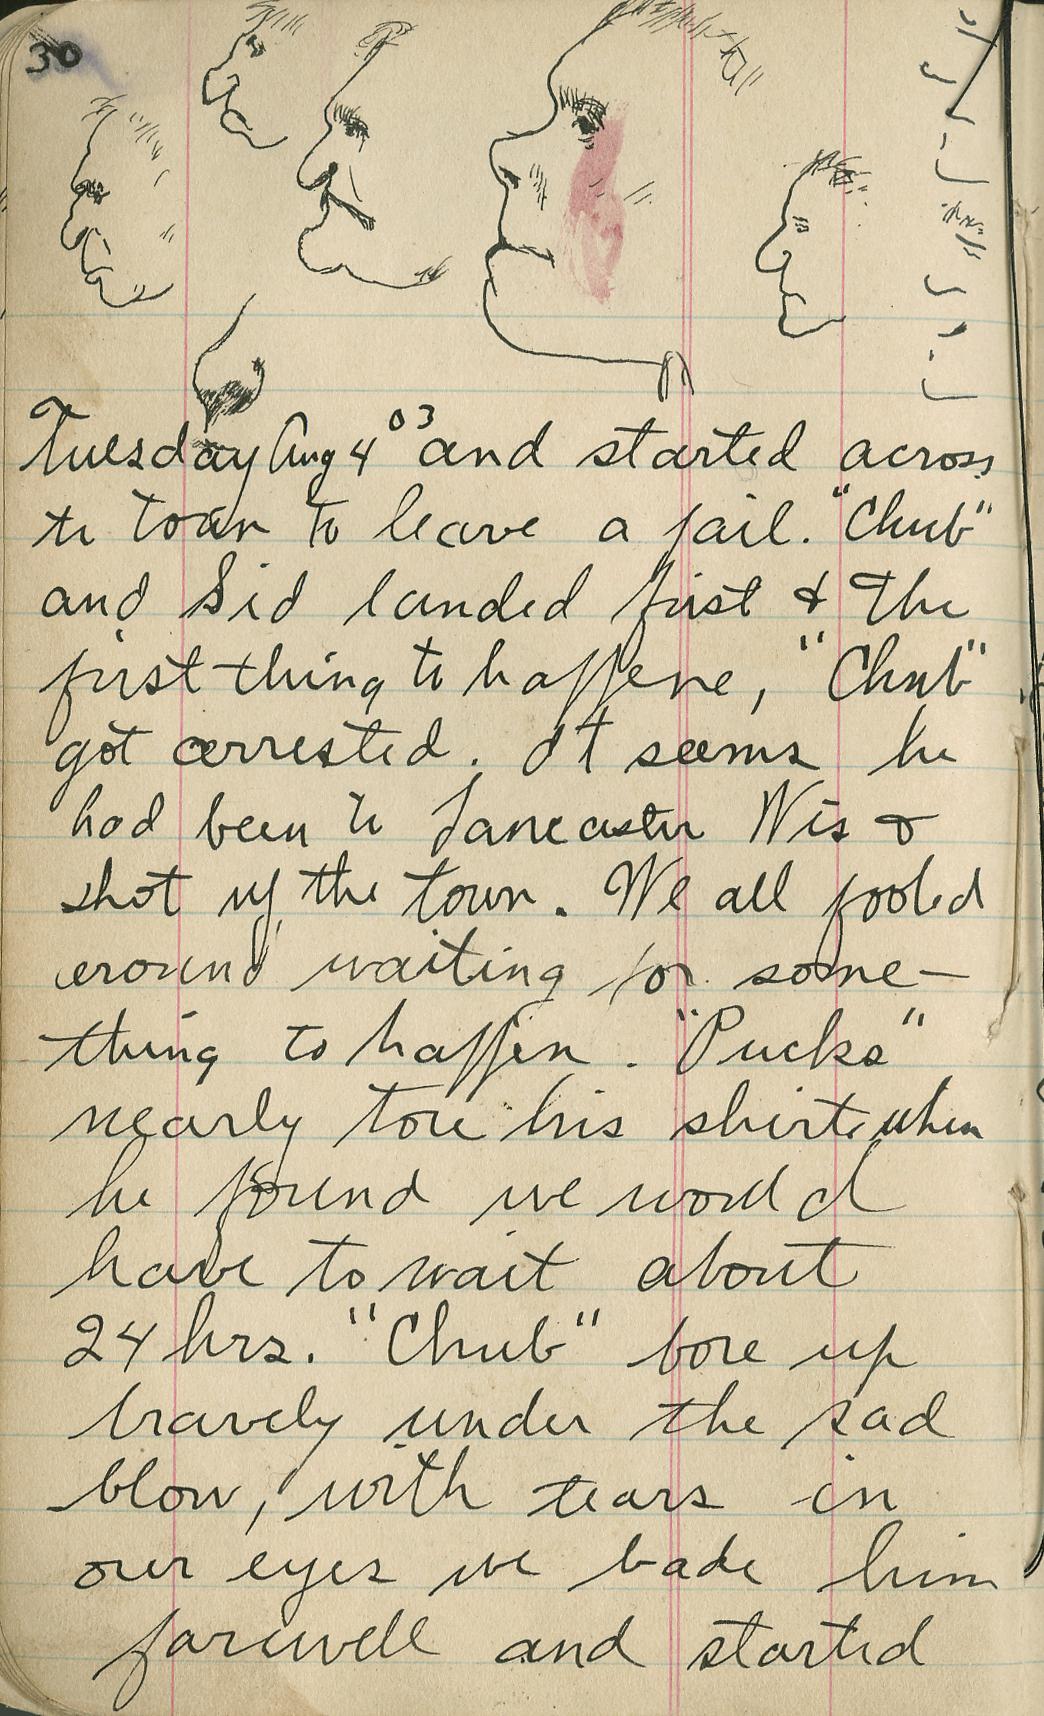 30
Tuesday Aug 4 03 and started across
to town to leave a jail. "Chub"
and Sid landed first & the
first thing to happene, "Chub"
got arrested. It seems he
had been to Lancaster Wis &
shot up the town. We all fooled
around waiting for some-
thing to happen. "Pucks"
nearly tore his shirt when
he found we would
have to wait about
24 hrs. "Chub" bore up
bravely under the sad
blow, with tears in
our eyes we bade him
farewell and started